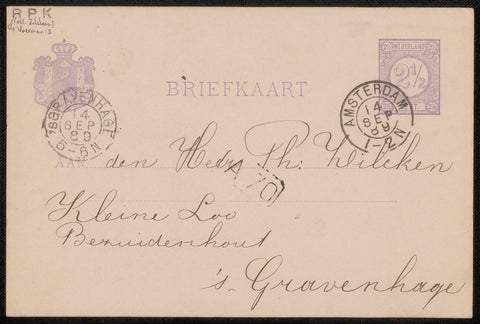 R P K
NEDERLAND
2 1/2
BRIEFKAART
'SGRAVENHAGE
14
SEP
89
5-6N
AMSTERDAM
14
SEP
89
1-2N
AAN den Heer Ph: Zilcken
Kleine Loo
Bezuidenhout
's Gravenhage